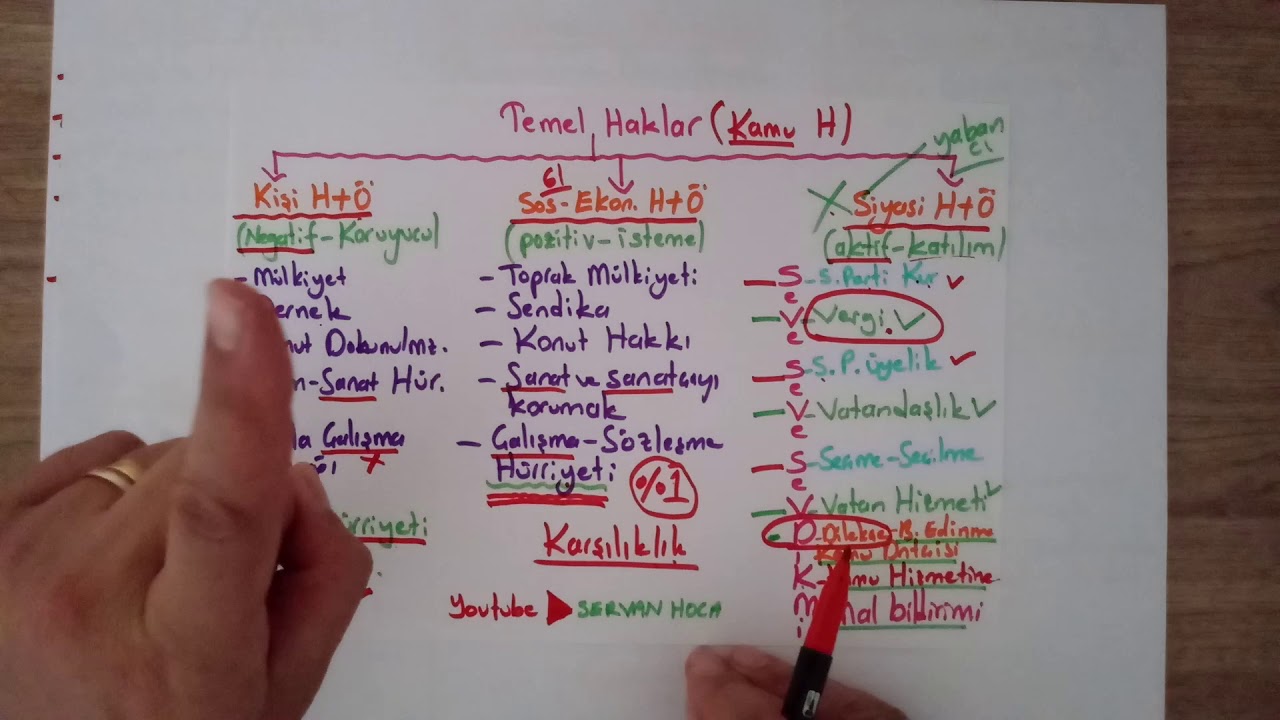 Temel Haklar (Kamu H)
yaban
cı
Kişi H+Ö
(Negatif-Koruyucu)
- Mülkiyet
ernek
ut Dokunulmz.
-Sanat Hür.
la Çalışma
X
rriyeti
61
Sos-Ekon. H+Ö
(pozitiv-isteme)
- Toprak Mülkiyeti
- Sendika
- Konut Hakkı
- Sanat ve sanatçıyı
korumak
- Çalışma-Sözleşme
Hürriyeti
%1
Karşılıklık
Youtube ▶ SERVAN HOCA
X Siyasi H+Ö
(aktif-katılım)
- S - S. Parti Kur ✓
e
- V - Vergi ✓
e
- S - S. P. üyelik ✓
e
- V - Vatandaşlık ✓
e
- S - Seçme-Seçilme
e
- V - Vatan Hizmeti ✓
- D - Dilekçe - B. Edinme
i Kamu Dntçisi
K - amu Hizmetine
M al bildirimi
i